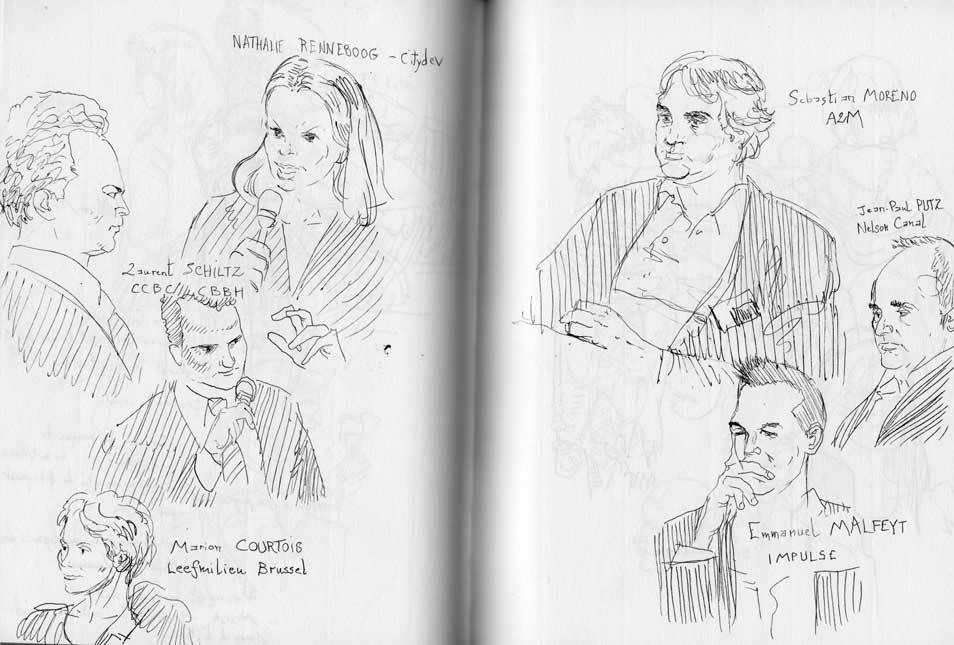 NATHALIE RENNEBOOG - Citydev
Laurent SCHILTZ
CCBC // CBBH
Marion COURTOIS
Leefmilieu Brussel
Sebastian MORENO
A2M
Jean-Paul PUTZ
Nelson Canal
Emmanuel MALFEYT
IMPULSE